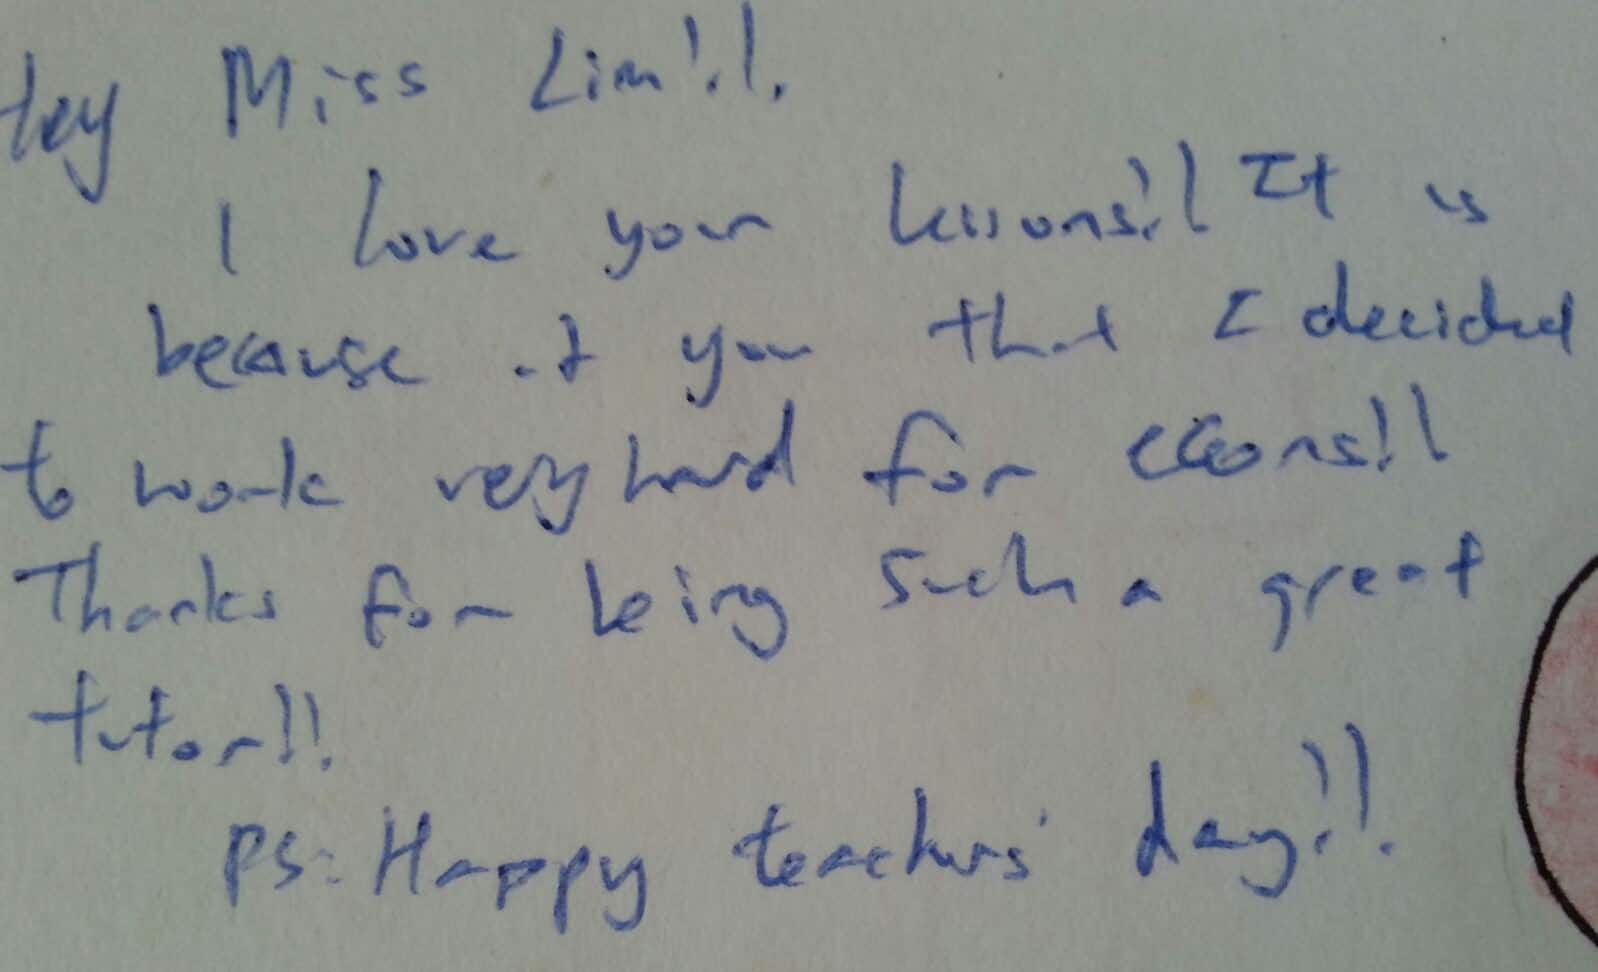 Hey Miss Lim!!
I love your lessons!! It is
because of you that I decided
to work very hard for econs!!
Thanks for being such a great
tutor!!
PS: Happy teachers' day!!